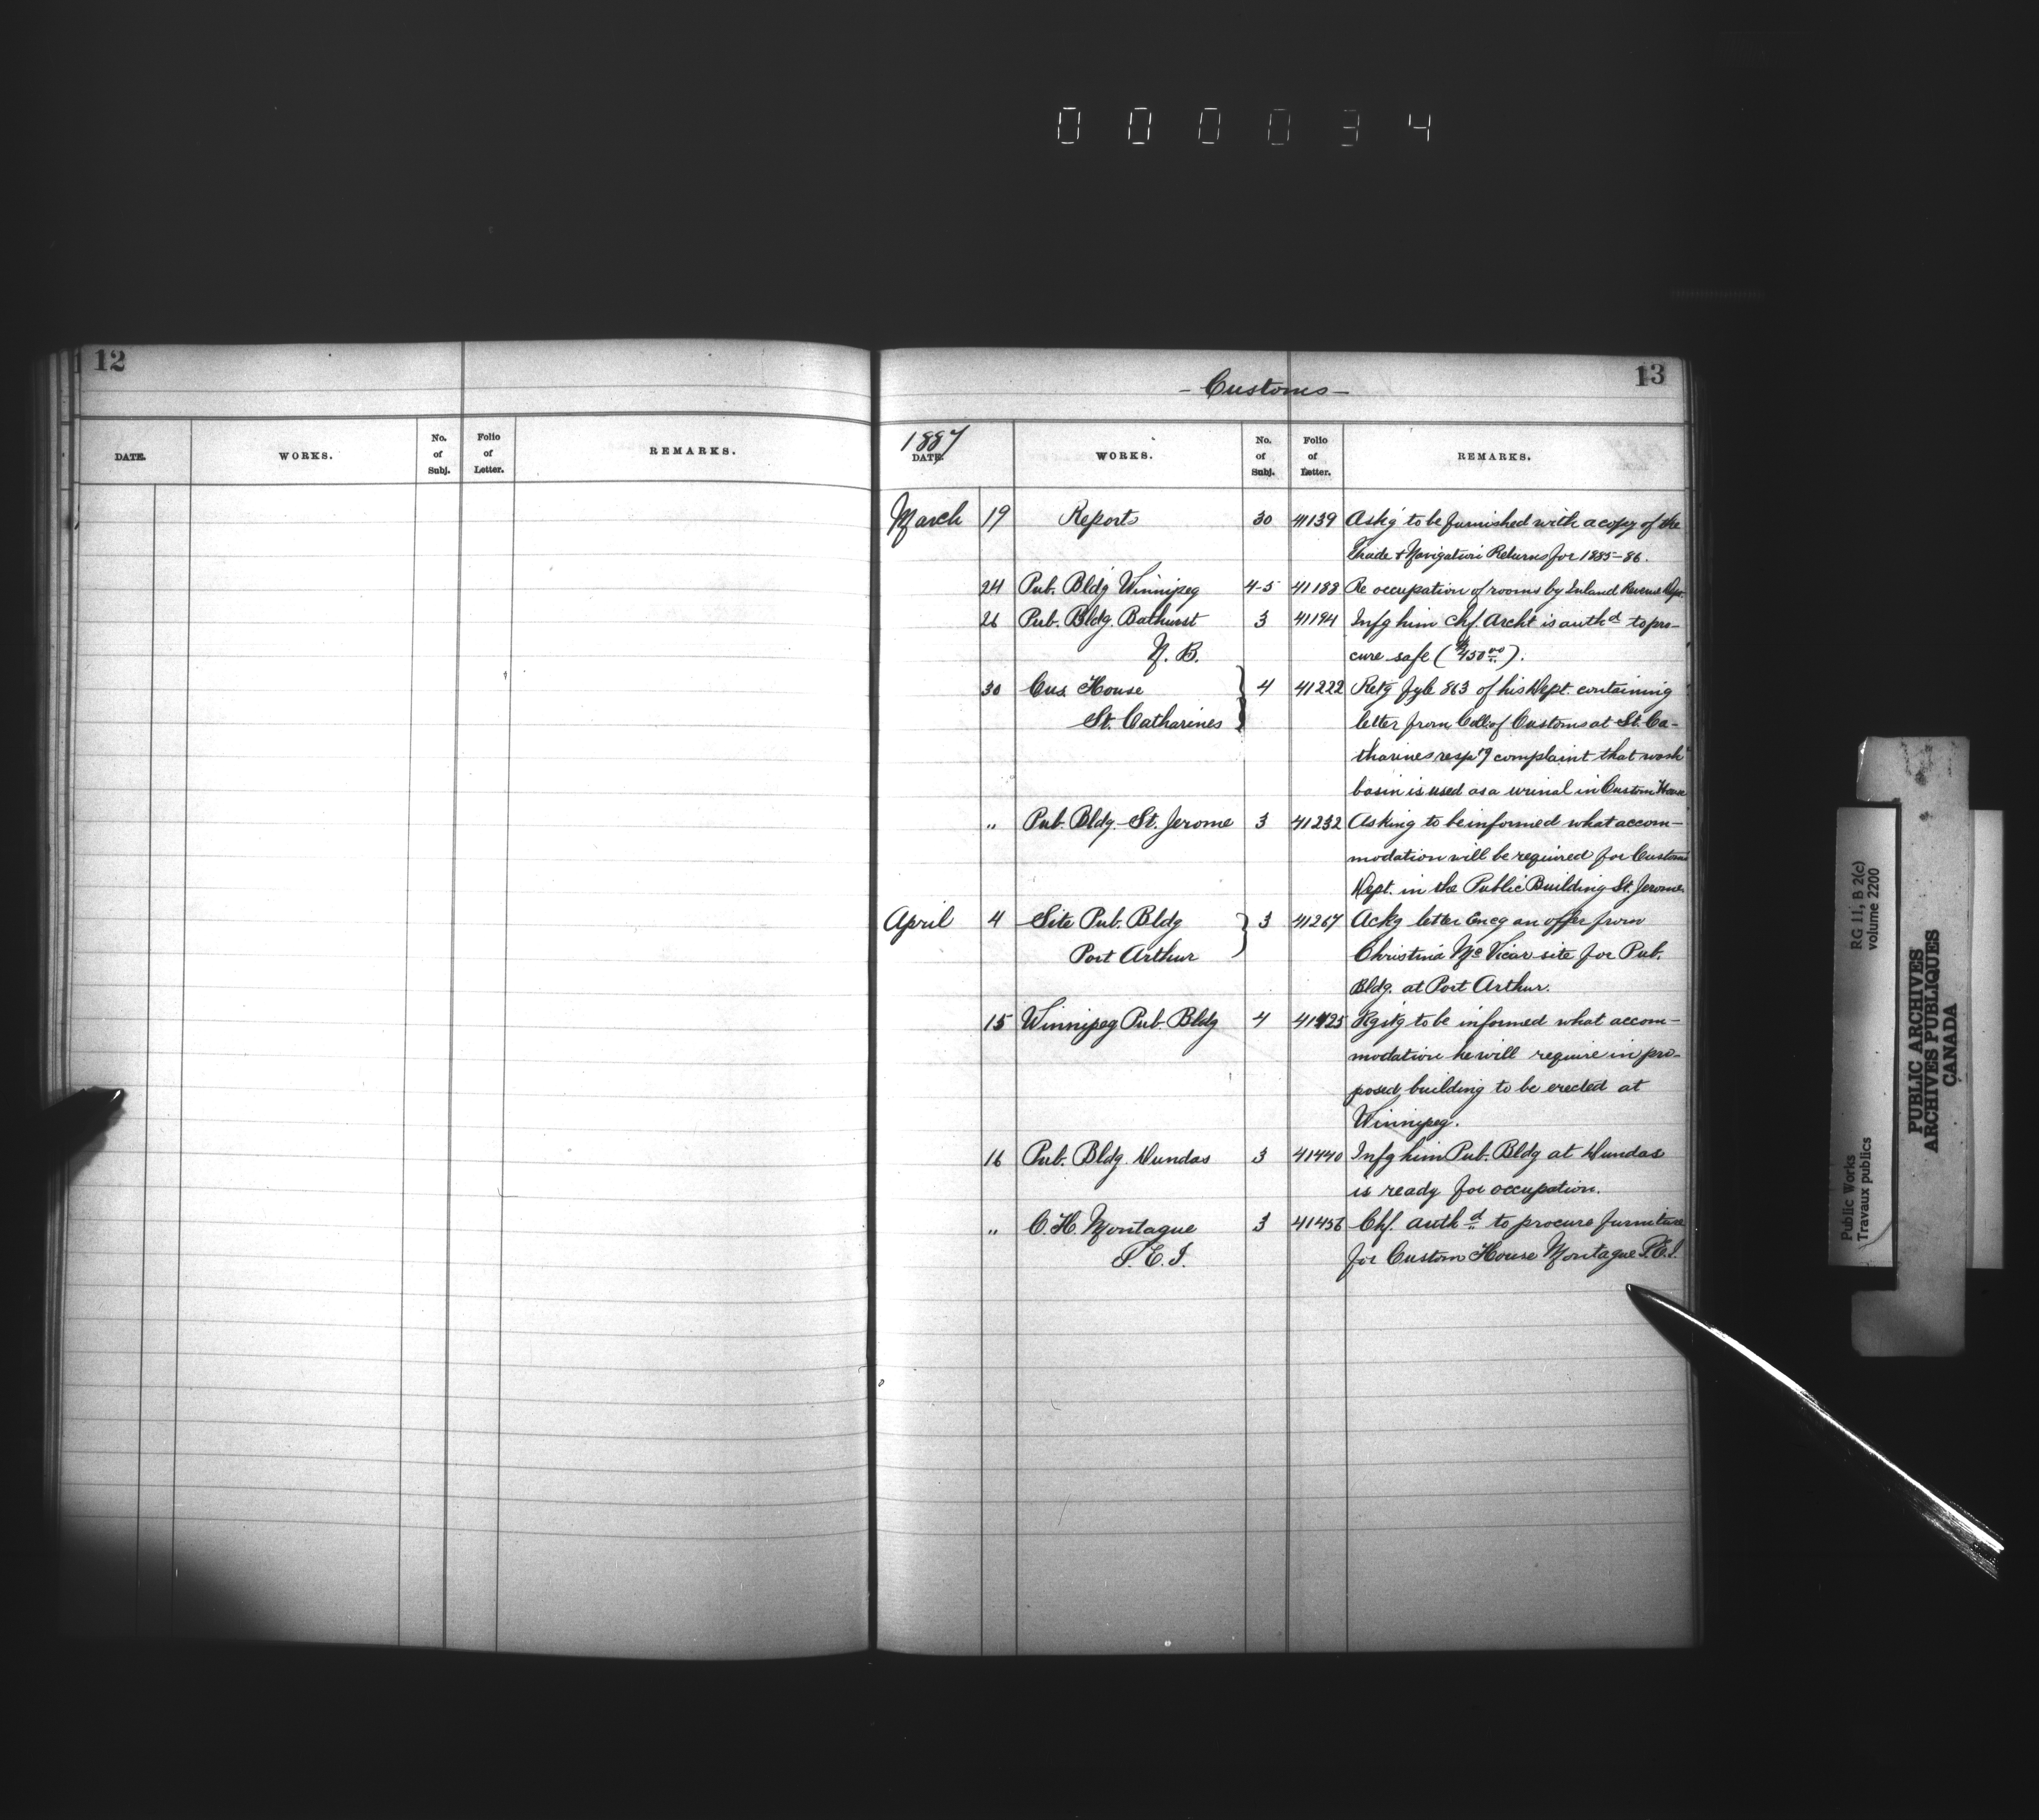 0 0 0 0 3 4
12
DATE. WORKS. No. of Subj. Folio of Letter. REMARKS.
- Customs - 13
1887
DATE. WORKS. No. of Subj. Folio of Letter. REMARKS.
March 19 Reports 30 41139 Ask'g to be furnished with a copy of the
Trade & Navigation Returns for 1885-86.
24 Pub. Bldg Winnipeg 4-5 41188 Re occupation of rooms by Inland Revenue Dept.
26 Pub. Bldg. Bathurst 3 41194 Infg him Chf. Archt is authd to pro-
N. B. cure safe ($450.00).
30 Cus House 4 41222 Retg fyle 863 of his Dept. containing
St. Catharines letter from Coll. of Customs at St. Ca-
tharines resp'g complaint that wash
basin is used as a urinal in Custom House
" Pub. Bldg - St. Jerome 3 41232 Asking to be informed what accom-
modation will be required for Customs
Dept. in the Public Building St. Jerome
April 4 Site Pub. Bldg 3 41267 Ackg letter encg an offer from
Port Arthur Christina McVicar site for Pub.
Bldg. at Port Arthur.
15 Winnipeg Pub. Bldg 4 41425 Rqstg to be informed what accom-
modation he will require in pro-
posed building to be erected at
Winnipeg.
16 Pub. Bldg. Dundas 3 41440 Infg him Pub. Bldg at Dundas
is ready for occupation.
" C. H. Montague 3 41456 Chf. authd to procure furniture
P. E. I. for Custom House Montague P.E.I.
RG 11, B 2(c)
volume 2200
Public Works
Travaux publics
PUBLIC ARCHIVES
ARCHIVES PUBLIQUES
CANADA